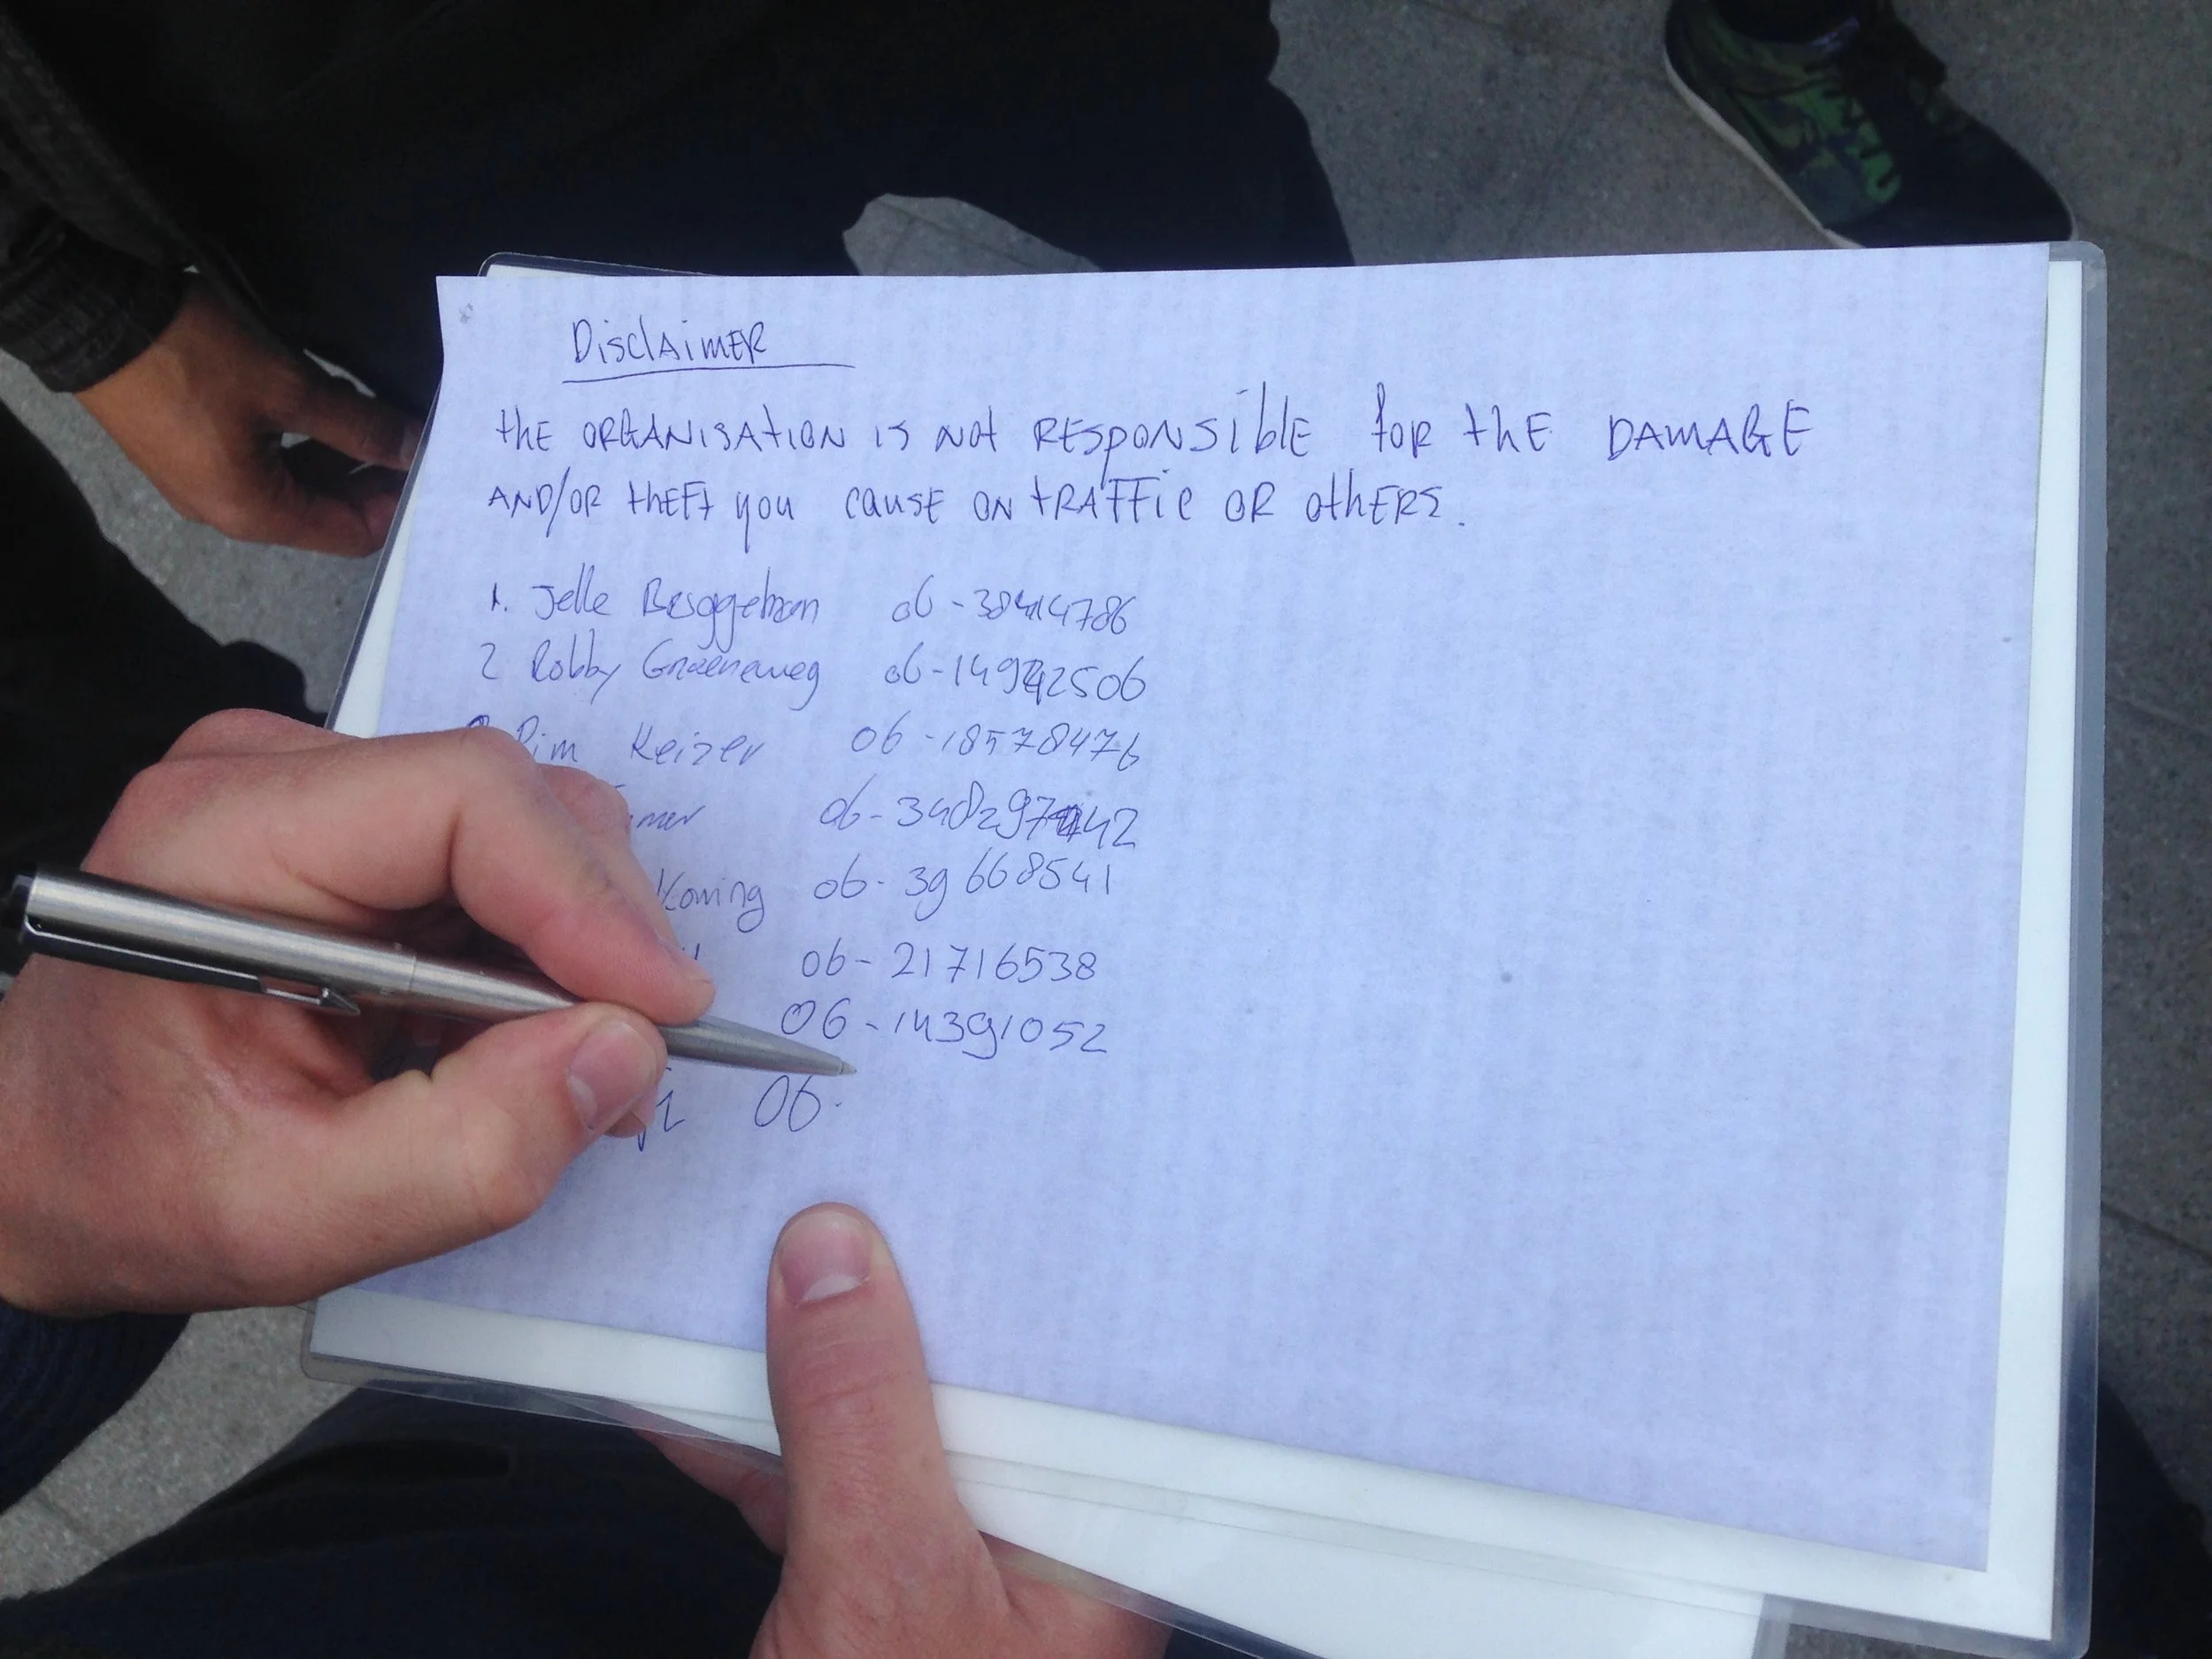 DisclAimER
thE ORGANISAtION is NOt RESpONSiblE foR thE DAMAGE
AND/OR thEFt you causE ON tRAFFic OR othERS.
1. Jelle 06-
2 Robby Groeneweg 06-
Pim Keizer 06-18578476
06-
Koning 06-39668541
06-21716538
06-14391052
06-